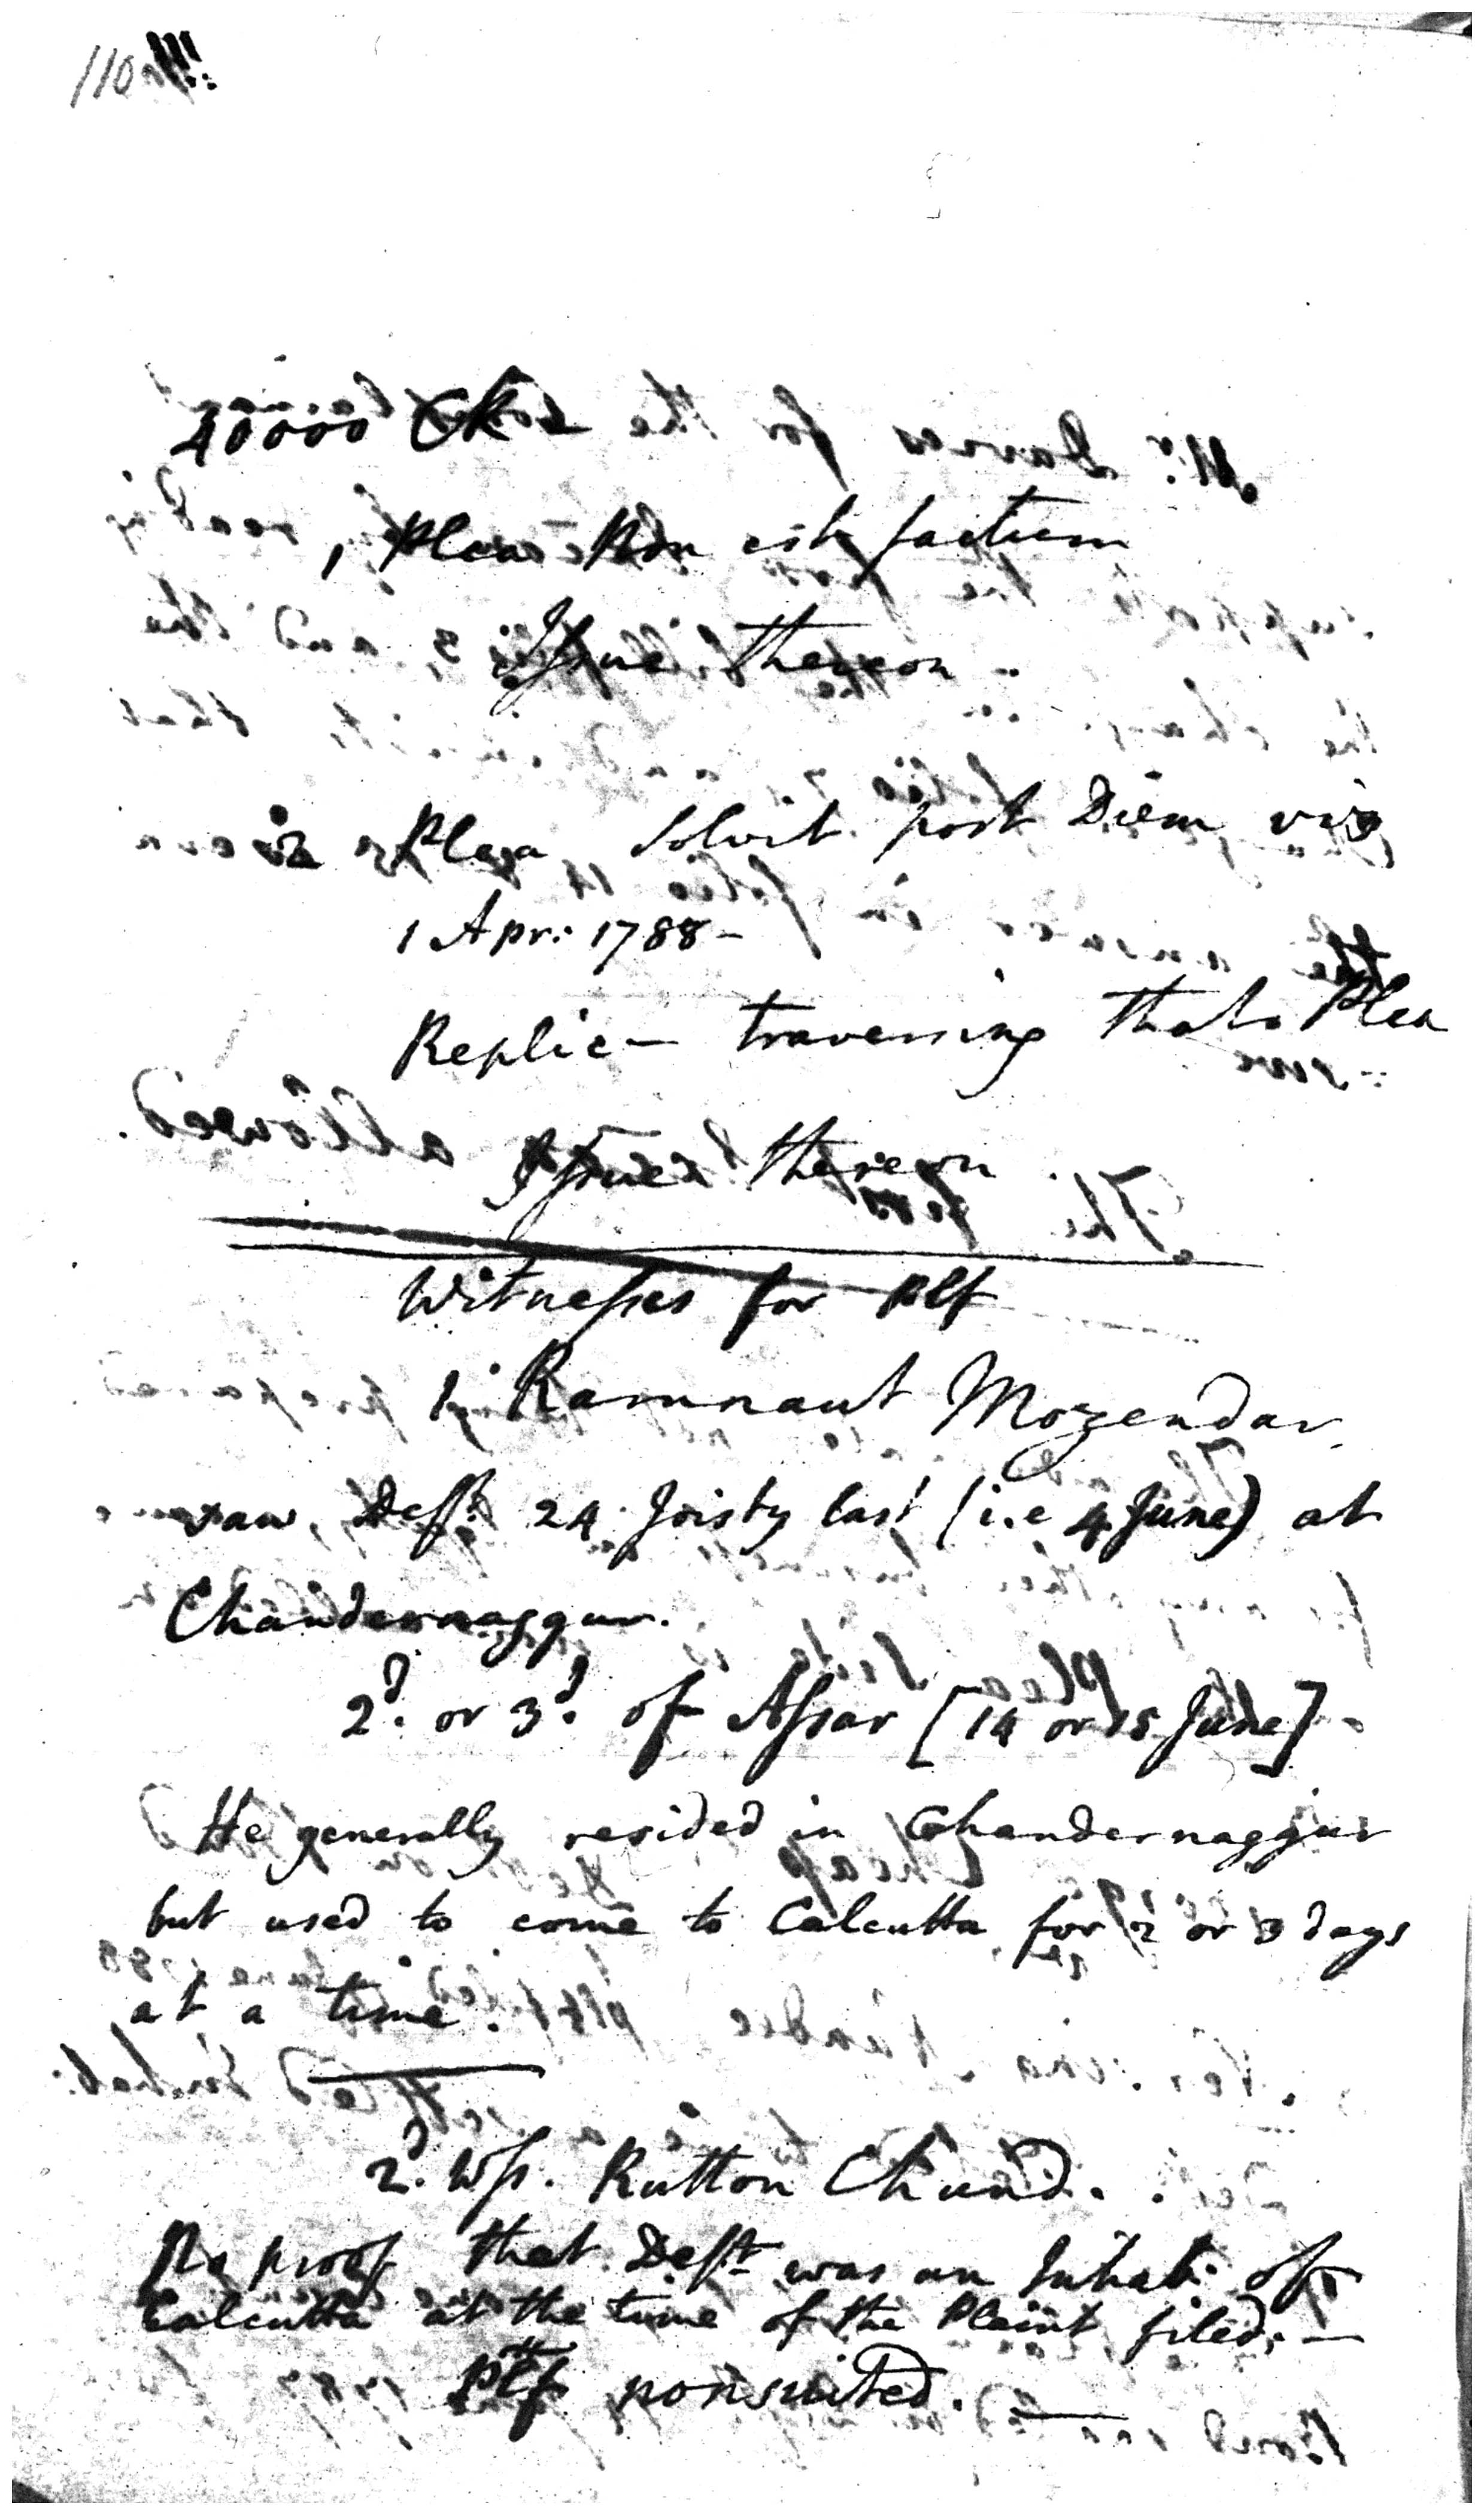 110
40000 CRs
1 Plea Non est factum
Issue thereon
2 Plea Solvit post Diem viz
1 Apr: 1788 -
Replic - traversing that Plea
Issue thereon
Witnesses for Plf
1. Ramnaut Mozendar
saw Deft 24 Joisty last (i.e 4 June) at
Chandernaggur.
2d. or 3d. of Assar [14 or 15 June]
He generally resided in Chandernaggur
but used to come to Calcutta for 2 or 3 days
at a time.
2d. Wss. Rutton Chund.
No proof that Deft was an Inhab: of
Calcutta at the time of the Plaint filed. —
Plf nonsuited.